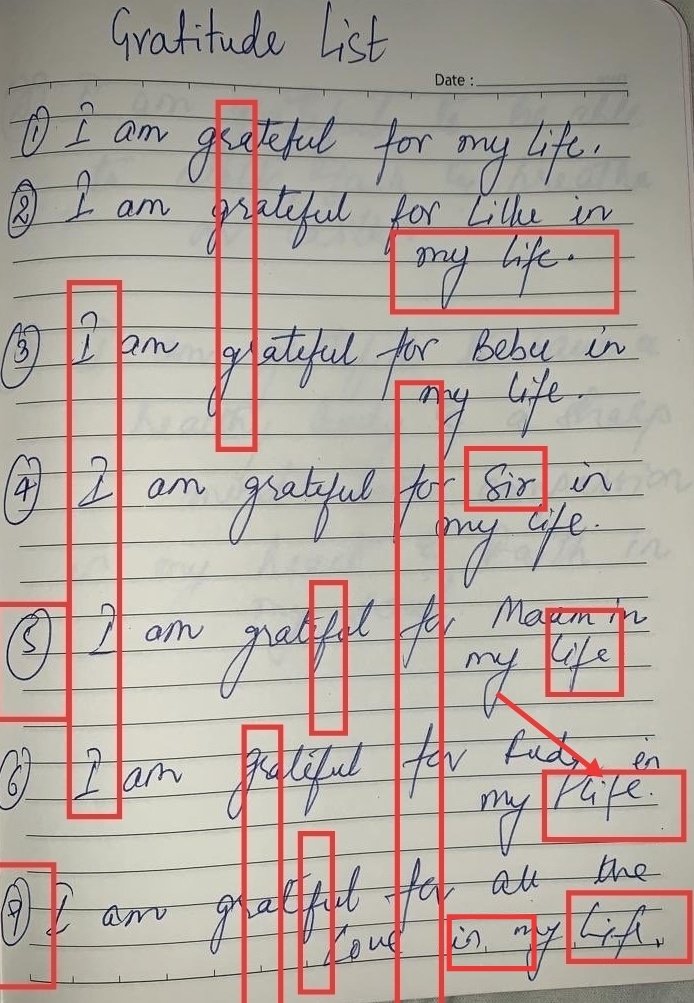 Gratitude List
Date :
① I am grateful for my life.
② I am grateful for Lille in
my life.
③ I am grateful for Bebu in
my life.
④ I am grateful for Sir in
my life.
⑤ I am grateful for Maam in
my life
⑥ I am grateful for in
my life.
⑦ I am grateful for all the
love in my Life.